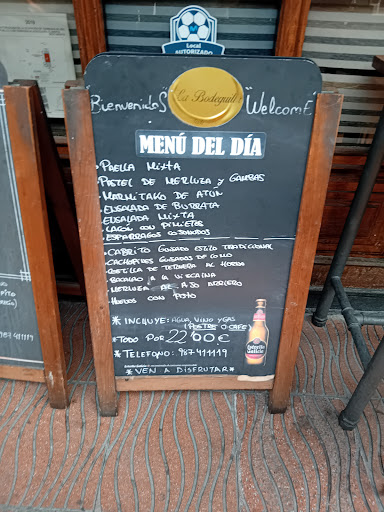 Local
AUTORIZADO
Bienvenidos "La Bodeguilla" Welcome
MENÚ DEL DÍA
• PAELLA MIXTA
• PASTEL DE MERLUZA y GAMBAS
• MARMITAKO DE ATÚN
• ENSALADA DE BURRATA
• ENSALADA MIXTA
• LACÓN CON PIMIENTOS
• ESPARRAGOS COJONUDOS
• CABRITO GUISADO ESTILO TRADICIONAL
• CACHOPINES GUISADOS DE
• COSTILLA DE TERNERA AL HORNO
• BACALAO A LA VIZCAINA
• MERLUZA AL AJO ARRIERO
• HUEVOS CON
* INCLUYE: AGUA, VINO y GAS
(POSTRE O CAFÉ)
* TODO POR 22'00€
* TELEFONO: 987 411119
* VEN A DISFRUTAR *
Estrella
Galicia
987 411119